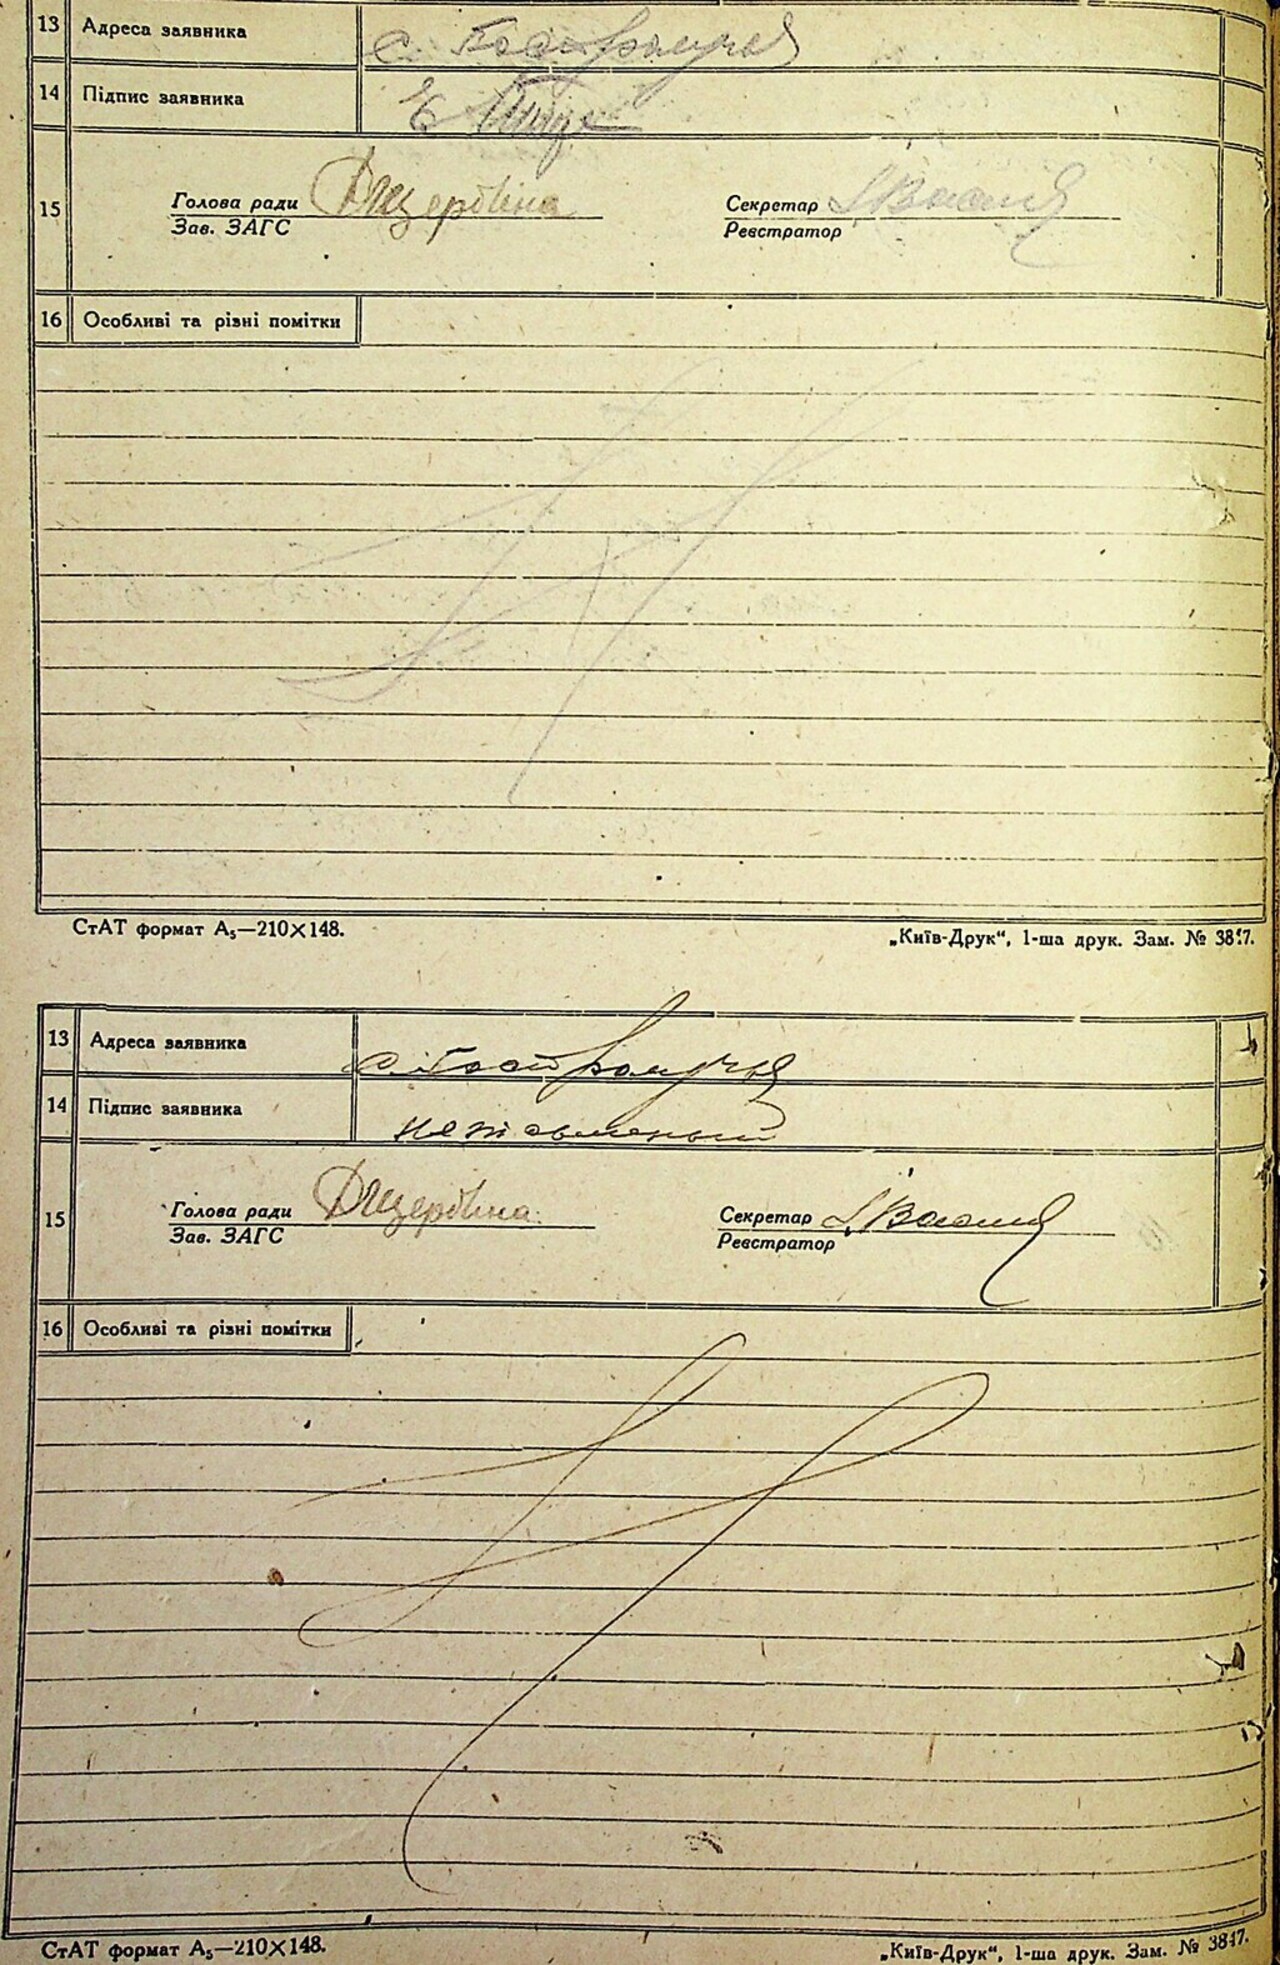 13 Адреса заявника с. Гостролуччя
14 Підпис заявника
15 Голова ради Д Щербіна Секретар
Зав. ЗАГС Реєстратор
16 Особливі та різні помітки
СтАТ формат А₅—210×148. „Київ-Друк“, 1-ша друк. Зам. №
13 Адреса заявника с. Гостролуччя
14 Підпис заявника
15 Голова ради Д Щербіна Секретар
Зав. ЗАГС Реєстратор
16 Особливі та різні помітки
СтАТ формат А₅—210×148. „Київ-Друк“, 1-ша друк. Зам. №